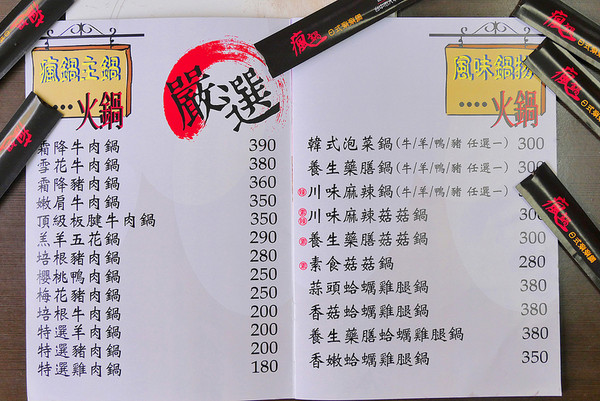 瘋鍋主鍋
火鍋
嚴選
霜降牛肉鍋 390
雪花牛肉鍋 380
霜降豬肉鍋 360
嫩肩牛肉鍋 350
頂級板腱牛肉鍋 350
羔羊五花鍋 290
培根豬肉鍋 280
櫻桃鴨肉鍋 250
梅花豬肉鍋 250
培根牛肉鍋 200
特選羊肉鍋 200
特選豬肉鍋 200
特選雞肉鍋 180
風味鍋物
火鍋
韓式泡菜鍋(牛/羊/鴨/豬 任選一) 300
養生藥膳鍋(牛/羊/鴨/豬 任選一) 300
辣 川味麻辣鍋(牛/羊/鴨/豬 任選一) 300
素 辣 川味麻辣菇菇鍋 300
素 養生藥膳菇菇鍋 300
素 素食菇菇鍋 280
蒜頭蛤蠣雞腿鍋 380
香菇蛤蠣雞腿鍋 380
養生藥膳蛤蠣雞腿鍋 380
香嫩蛤蠣雞腿鍋 350
瘋鍋
瘋鍋